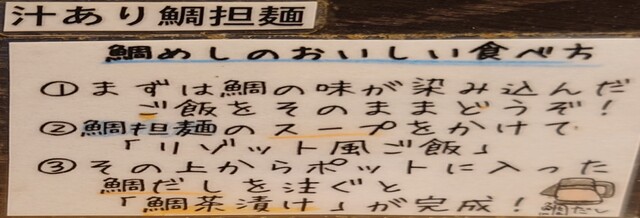 汁あり鯛担麺
鯛めしのおいしい食べ方
① まずは鯛の味が染み込んだ
ご飯をそのままどうぞ!
② 鯛担麺のスープをかけて
「リゾット風ご飯」
③ その上からポットに入った
鯛だしを注ぐと
「鯛茶漬け」が完成!
鯛だし